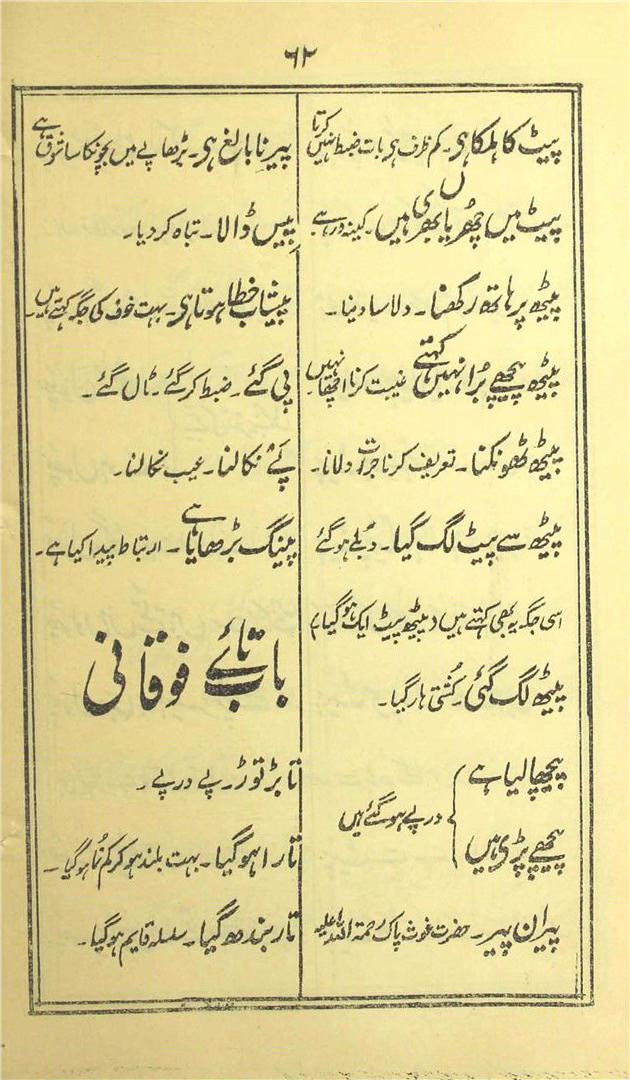 ۶۲
پیٹ کا ہلکا ہی۔ کم ظرف ہی بات ضبط نہیں کرتا
پیٹ میں چھریاں بھری ہیں۔ کینہ ور ہے
پیٹھ پر ہاتھ رکھنا۔ دلاسا دینا۔
پیٹھ پیچھے برا نہیں کہتے غیبت کرنا اچھا نہیں
پیٹھ ٹھونکنا۔ تعریف کرنا جرات دلانا۔
پیٹھ سے پیٹ لگ گیا۔ دبلے ہو گئے
اسی جگہ یہ بھی کہتے ہیں (پیٹھ پیٹ ایک ہو گیا)
پیٹھ لگ گئی۔ کشتی ہار گیا۔
پیچھا لیا ہے
پیچھے پڑی ہیں
درپے ہو گئے ہیں
پیران پیر۔ حضرت غوث پاک رحمۃ اللہ علیہ
پیر نابالغ ہی۔ بڑھاپے میں بچونکا سا شوق ہے
پیس ڈالا۔ تباہ کر دیا۔
پیشاب خطا ہوتا ہی۔ بہت خوف کی جگہ کہتے ہیں۔
پی گئے۔ ضبط کر گئے۔ ٹال گئے۔
پئے نکالنا۔ عیب نکالنا۔
پینگ بڑھایا ہے۔ ارتباط پیدا کیا ہے۔
باب تائے فوقانی
تابڑ توڑ۔ پے درپے۔
تارا ہو گیا۔ بہت بلند ہو کر کم نما ہو گیا۔
تار بندھ گیا۔ سلسلہ قایم ہو گیا۔